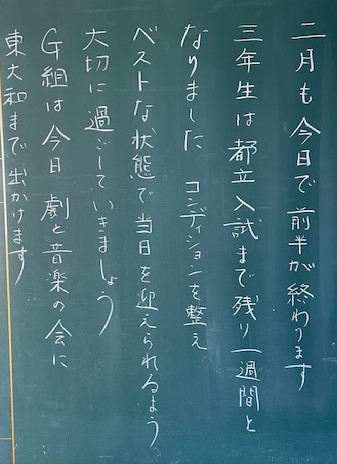 二月も今日で前半が終わります
三年生は都立入試まで残り一週間と
なりました コンディションを整え
ベストな状態で当日を迎えられるよう
大切に過ごしていきましょう
G組は今日劇と音楽の会に
東大和まで出かけます